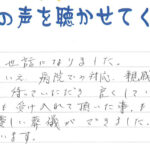 の声を聴かせてく
世話になりました。
いえ、病院での対応、親戚
待っていただき良くしてい
も受け入れて頂いた事、も
しい葬儀ができました。
います。